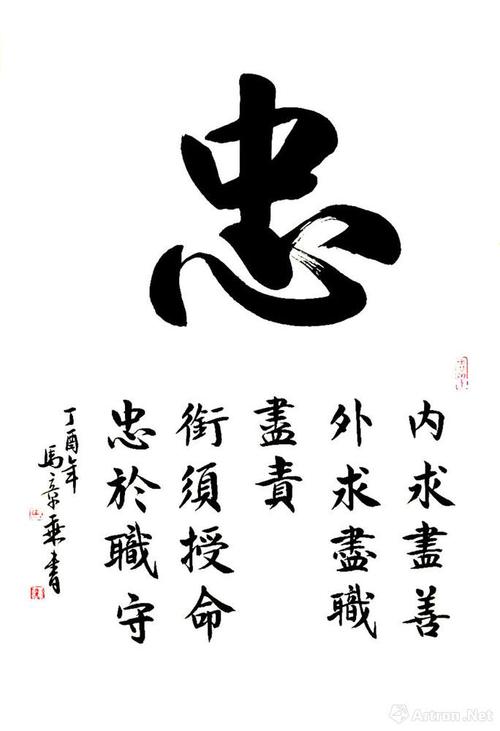 忠
内求盡善
外求盡職
盡責
銜須授命
忠於職守
丁酉年
馬章乘書
Artron.Net